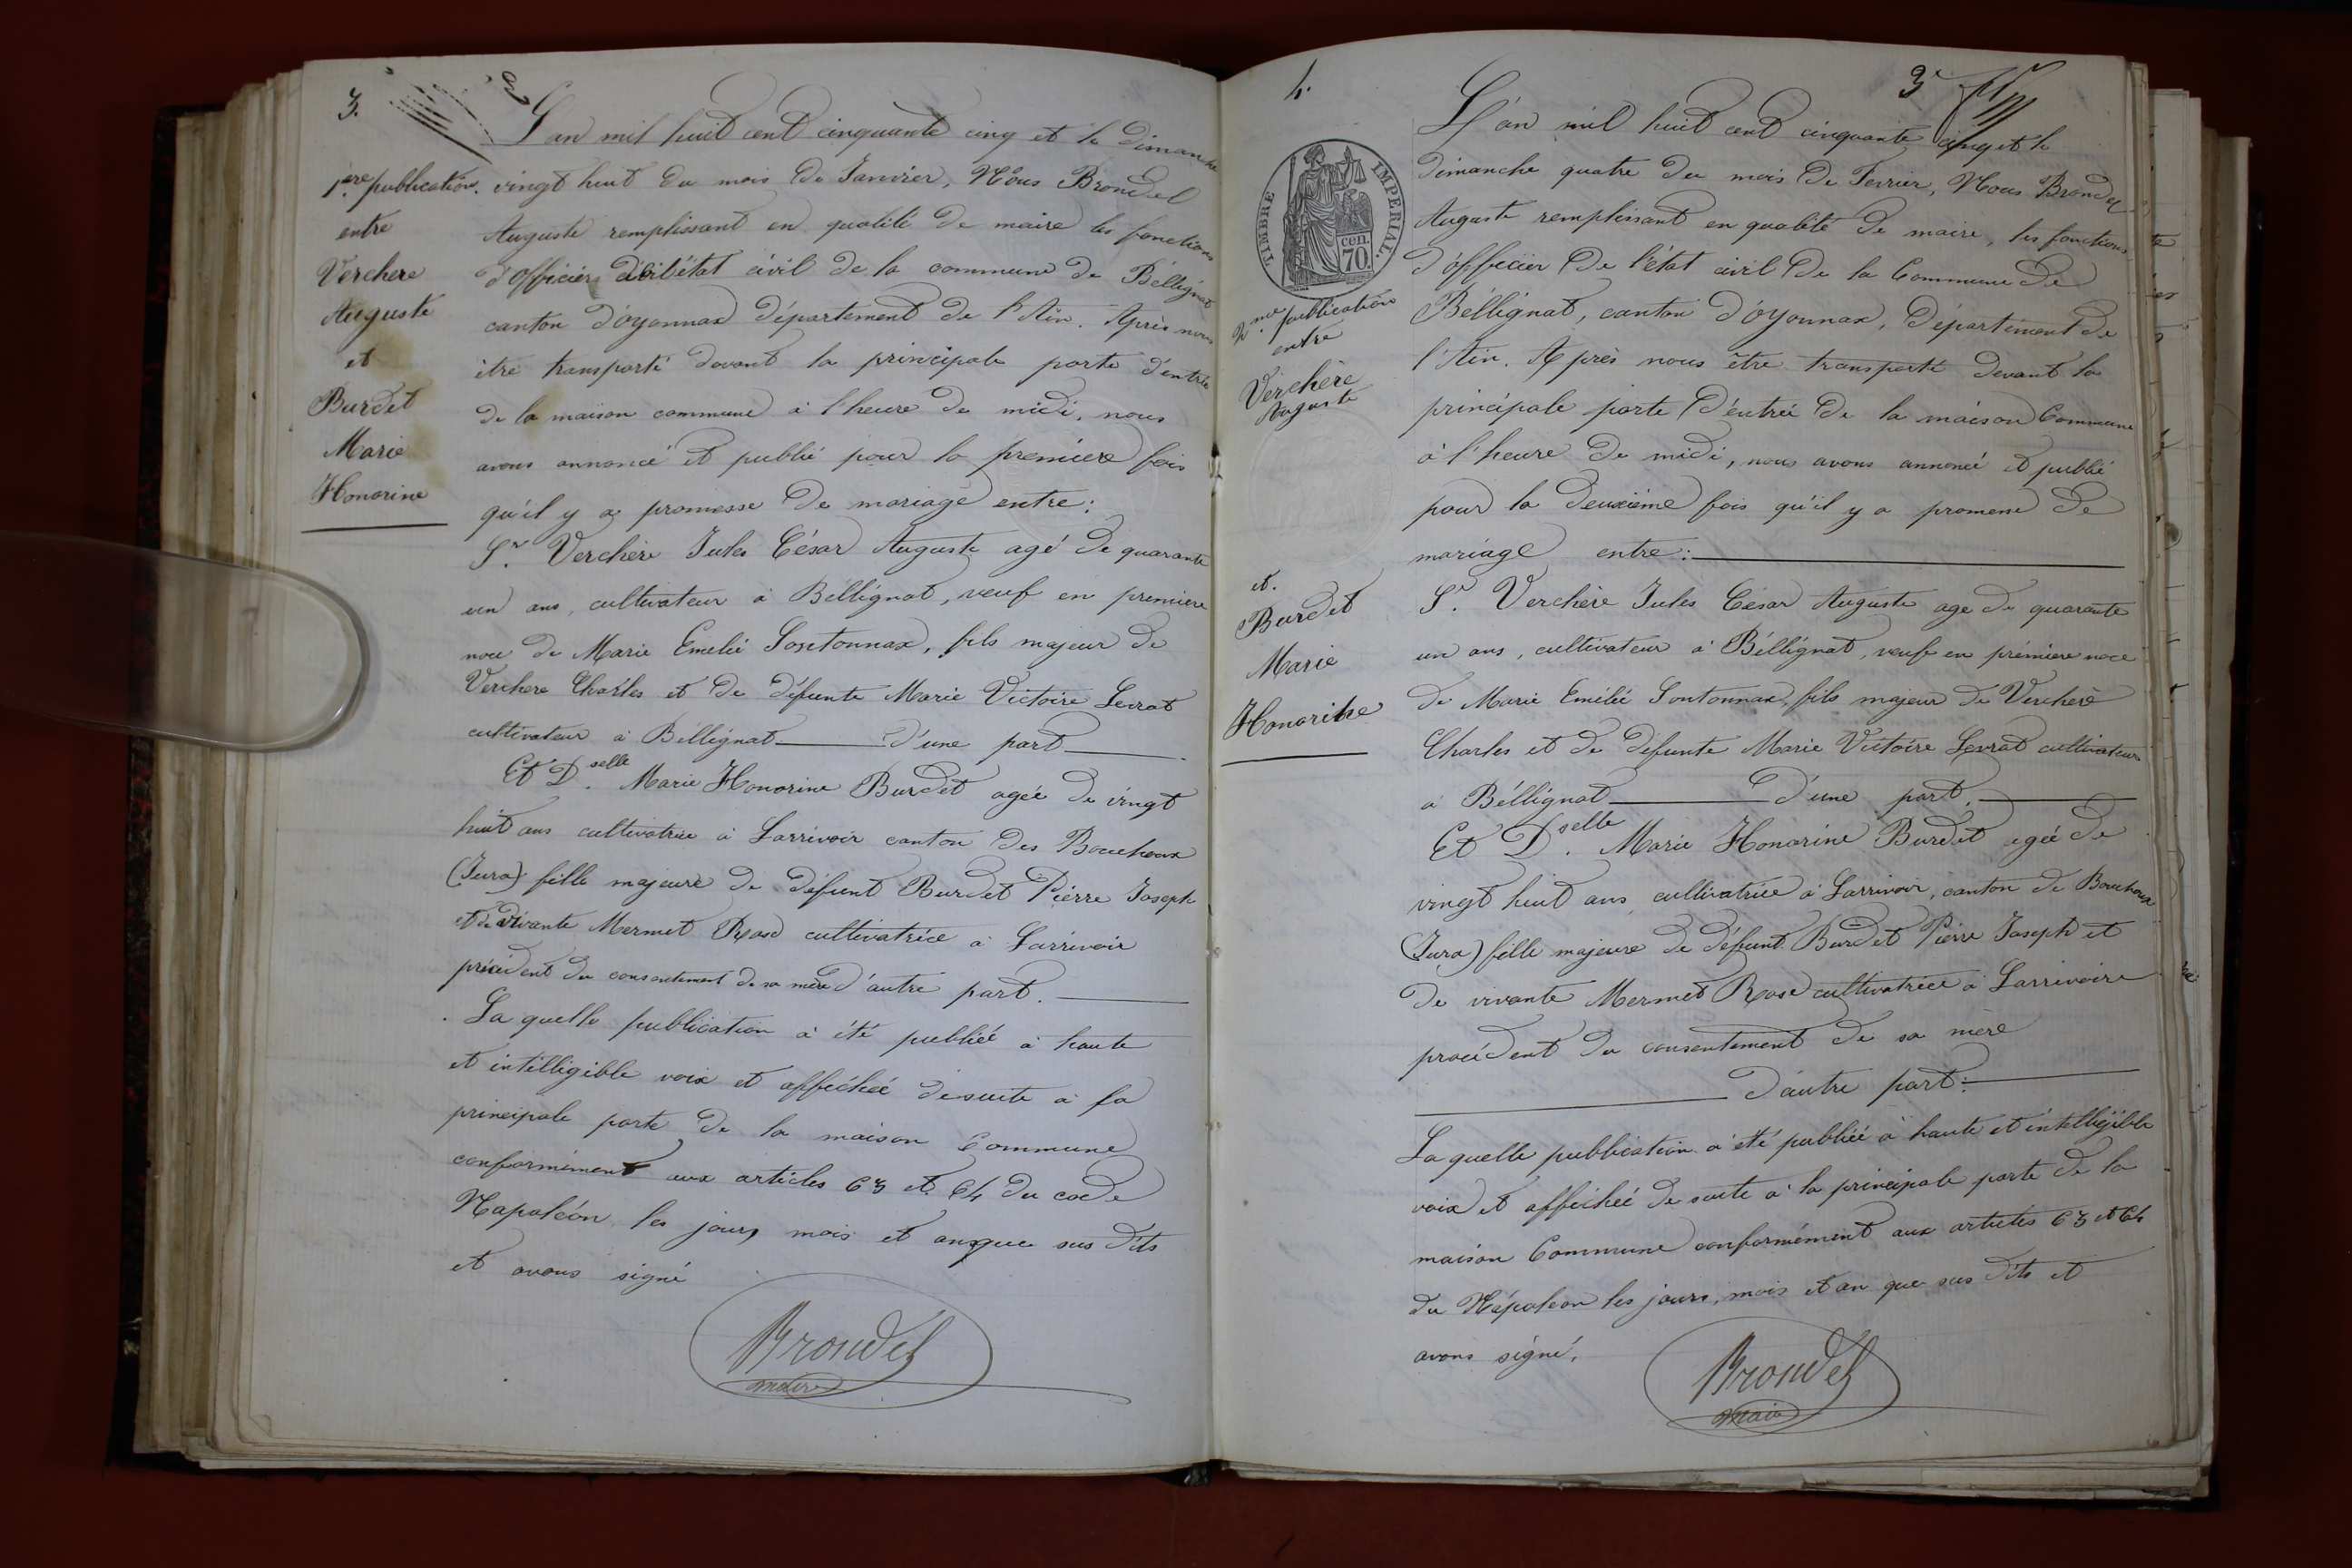 3.
1ère publication.
entre
Verchere
Auguste
et
Burdet
Marie
Honorine
L'an mil huit cent cinquante cinq et le Dimanche
vingt huit du mois de Janvier, Nous Brondel
Auguste remplissant en qualité de maire les fonctions
d'officier de l'état civil de la commune de Béllignat
canton d'oyonnax département de l'Ain. Après nous
être transporté devant la principale porte d'entrée
de la maison commune à l'heure de midi, nous
avons annoncé et publié pour la première fois
qu'il y a promesse de mariage entre:
Sr. Verchère Jules César Auguste agé de quarante
un ans, cultivateur à Béllignat, veuf en premiere
noce de Marie Emelie Sontonnax, fils majeur de
Verchere Charles et de défunte Marie Victoire Levrat
cultivateur à Béllignat d'une part
Et Dselle. Marie Honorine Burdet agée de vingt
huit ans cultivatrice à Larrivoir canton des Bouchoux
(Jura) fille majeure de défunt Burdet Pierre Joseph
et de vivante Mermet Rose cultivatrice à Larrivoir
précédent du consentement de sa mère d'autre part.
La quelle publication à été publiée à haute
et intélligible voix et affichée desuite à la
principale porte de la maison Commune
conformément aux articles 63 et 64 du code
Napoléon les jours mois et an que sus dits
et avons signé
Brondel
maire
4.
3e
TIMBRE IMPERIAL.
cen.
70.
2me. publication
entre
Verchère
Auguste
et.
Burdet
Marie
Honorine
L'an mil huit cent cinquante cinq et le
dimanche quatre du mois de Fevrier, Nous Brondel
Auguste remplissant en qualité de maire, les fonctions
d'officier de l'état civil de la Commune de
Béllignat, canton d'oyonnax, Département de
l'Ain. Après nous être transporté devant la
principale porte d'entrée de la maison Commune
à l'heure de midi, nous avons annoncé et publié
pour la deuxième fois qu'il y a promesse de
mariage entre:
Sr. Verchère Jules César Auguste age de quarante
un ans, cultivateur à Béllignat, veuf en première noce
de Marie Emélie Sontonnax, fils majeur de Verchère
Charles et de défunte Marie Victoire Levrat cultivateur
à Béllignat d'une part.
Et Dselle. Marie Honorine Burdet agée de
vingt huit ans, cultivatrice à Larrivoir, canton de Bouchoux
(Jura) fille majeure de défunt Burdet Pierre Joseph et
de vivante Mermet Rose cultivatrice à Larrivoire
procédent du consentement de sa mère
d'autre part:
La quelle publication a été publiée à haute et intelligible
voix et affichée de suite à la principale porte de la
maison Commune conformément aux articles 63 et 64
du Napoleon les jours, mois et an que sus dits et
avons signé.
Brondel
maire